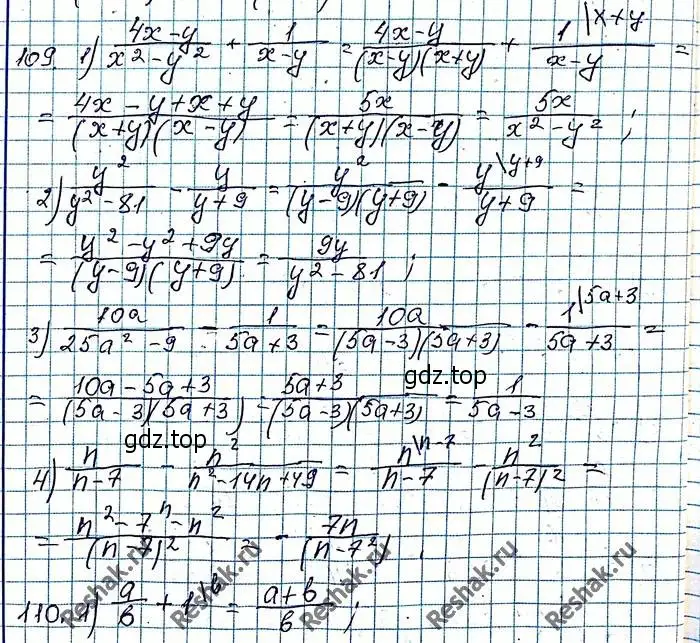 109. 1) (4x-y)/(x²-y²) + 1/(x-y) = (4x-y)/((x-y)(x+y)) + 1\x+y/(x-y) =
= (4x-y+x+y)/((x+y)(x-y)) = 5x/((x+y)(x-y)) = 5x/(x²-y²) ;
2) y²/(y²-81) - y/(y+9) = y²/((y-9)(y+9)) - y\y+9/(y+9) =
= (y²-y²+9y)/((y-9)(y+9)) = 9y/(y²-81) ;
3) 10a/(25a²-9) - 1/(5a+3) = 10a/((5a-3)(5a+3)) - 1\5a+3/(5a+3) =
= (10a-5a+3)/((5a-3)(5a+3)) = (5a+3)/((5a-3)(5a+3)) = 1/(5a-3)
gdz.top
gdz.top
4) n/(n-7) - n²/(n²-14n+49) = n\n-7/(n-7) - n²/(n-7)² =
= (n²-7n-n²)/(n-7)² = - 7n/(n-7²) ;
110. 1) a/b + 1\b = (a+b)/b ;
Reshak.ru
Reshak.ru
Reshak.ru
Reshak.ru